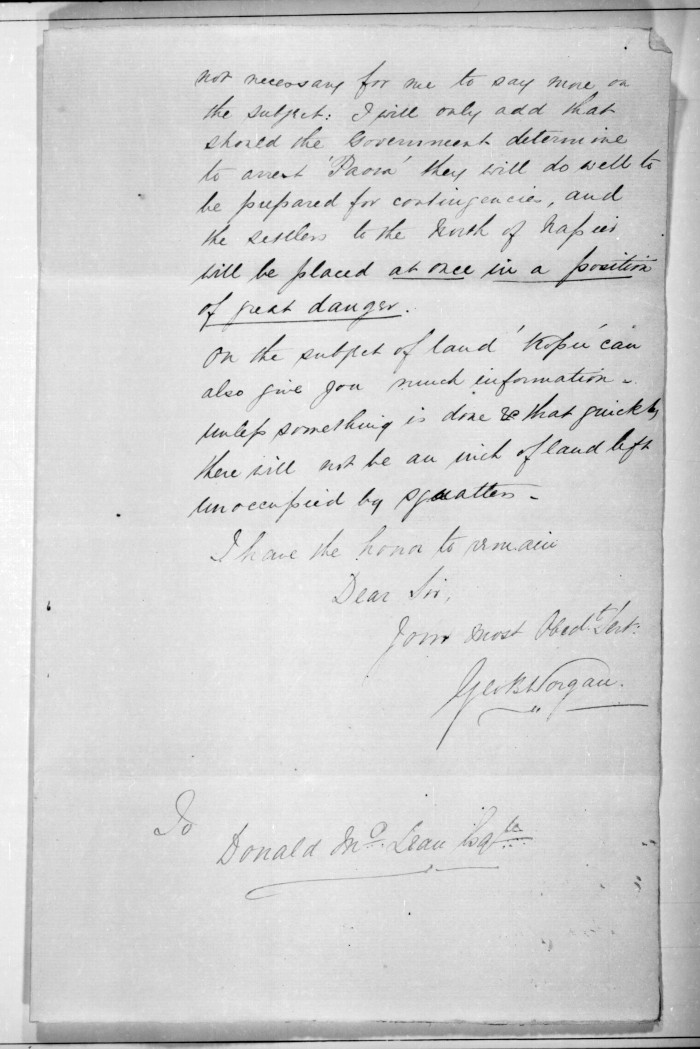 not necessary for me to say more on
the subject: I will only add that
should the Government determine
to arrest 'Paora' they will do well to
be prepared for contingencies, and
the settlers to the North of Napier
will be placed at once in a position
of great danger.
On the subject of land 'Kopu' can
also give you much information -
unless something is done & that quickly
there will not be an inch of land left
unoccupied by squatters -
I have the honor to remain
Dear Sir,
Your most Obedt. Servt.
Geo B Worgan.
To
Donald McLean Esqre